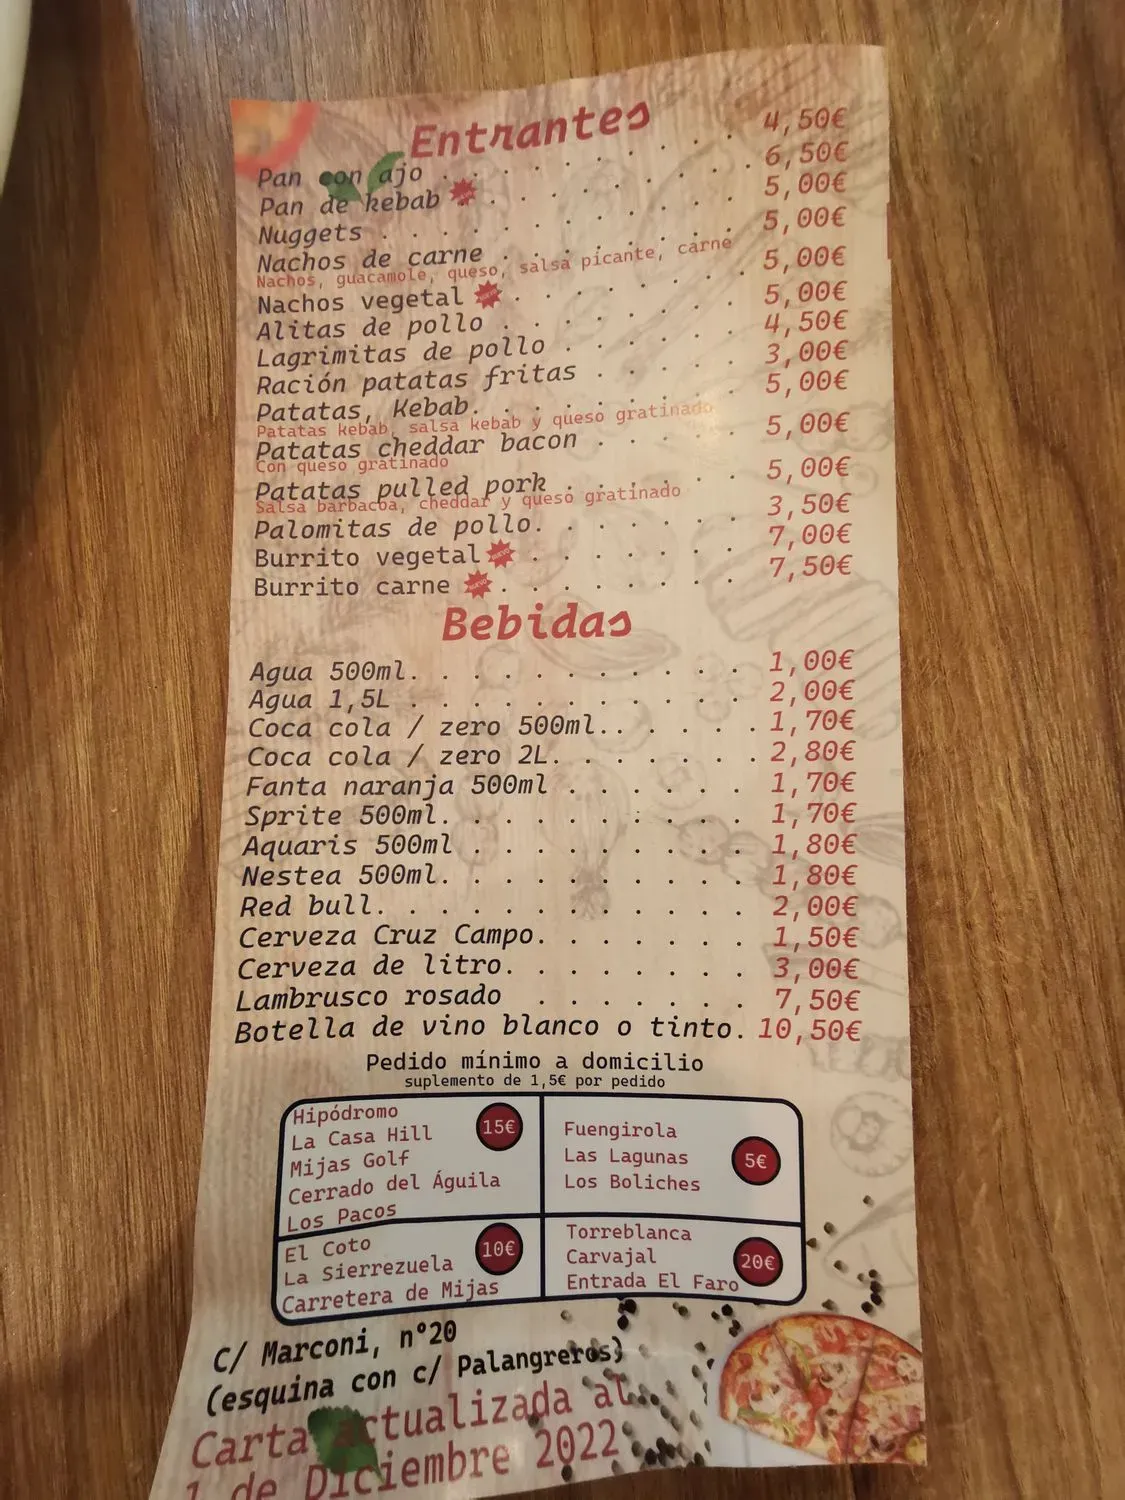 Entrantes
Pan con ajo . . . . . . . . . 4,50€
Pan de kebab . . . . . . . . . 6,50€
Nuggets . . . . . . . . . . . 5,00€
Nachos de carne . . . . . . . 5,00€
Nachos, guacamole, queso, salsa picante, carne
Nachos vegetal NUEVO . . . . . . . 5,00€
Alitas de pollo . . . . . . . 5,00€
Lagrimitas de pollo . . . . . 4,50€
Ración patatas fritas . . . . . 3,00€
Patatas, Kebab. . . . . . . . 5,00€
Patatas kebab, salsa kebab y queso gratinado
Patatas cheddar bacon . . . . . 5,00€
Con queso gratinado
Patatas pulled pork . . . . . 5,00€
Salsa barbacoa, cheddar y queso gratinado
Palomitas de pollo. . . . . . . 3,50€
Burrito vegetal NUEVO . . . . . . . 7,00€
Burrito carne NUEVO . . . . . . . . 7,50€
Bebidas
Agua 500ml. . . . . . . . . . . 1,00€
Agua 1,5L . . . . . . . . . . . 2,00€
Coca cola / zero 500ml.. . . . . . 1,70€
Coca cola / zero 2L. . . . . . . 2,80€
Fanta naranja 500ml . . . . . . 1,70€
Sprite 500ml. . . . . . . . . . 1,70€
Aquaris 500ml . . . . . . . . . 1,80€
Nestea 500ml. . . . . . . . . . 1,80€
Red bull. . . . . . . . . . . . 2,00€
Cerveza Cruz Campo. . . . . . . 1,50€
Cerveza de litro. . . . . . . . 3,00€
Lambrusco rosado . . . . . . . 7,50€
Botella de vino blanco o tinto. 10,50€
Pedido mínimo a domicilio
suplemento de 1,5€ por pedido
Hipódromo
La Casa Hill
Mijas Golf
Cerrado del Águila
Los Pacos
15€
Fuengirola
Las Lagunas
Los Boliches
5€
El Coto
La Sierrezuela
Carretera de Mijas
10€
Torreblanca
Carvajal
Entrada El Faro
20€
C/ Marconi, nº20
(esquina con c/ Palangreros)
Carta actualizada al
1 de Diciembre 2022